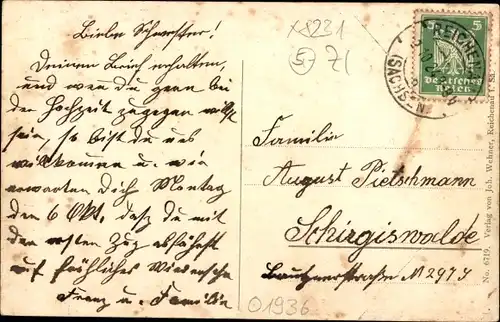 Liebe Schwester!
Deinen Brief erhalten,
und wenn du gern bei
der Hochzeit zugegen willst
sein, so bist du uns
willkommen u. wir
erwarten Dich Montag
den 6 Okt. daß du mit
den ersten Zug abfährst
auf fröhliches Wiedersehn
Franz u. Familie
X8231
5 71
REICHENAU
(SACHSEN)
5 5
Deutsches
Reich
Familie
August Pietschmann
Schirgiswalde
Bautznerstraße N 297
01936
No. 6719. Verlag von Joh. Wehner, Reichenau i. Sa.